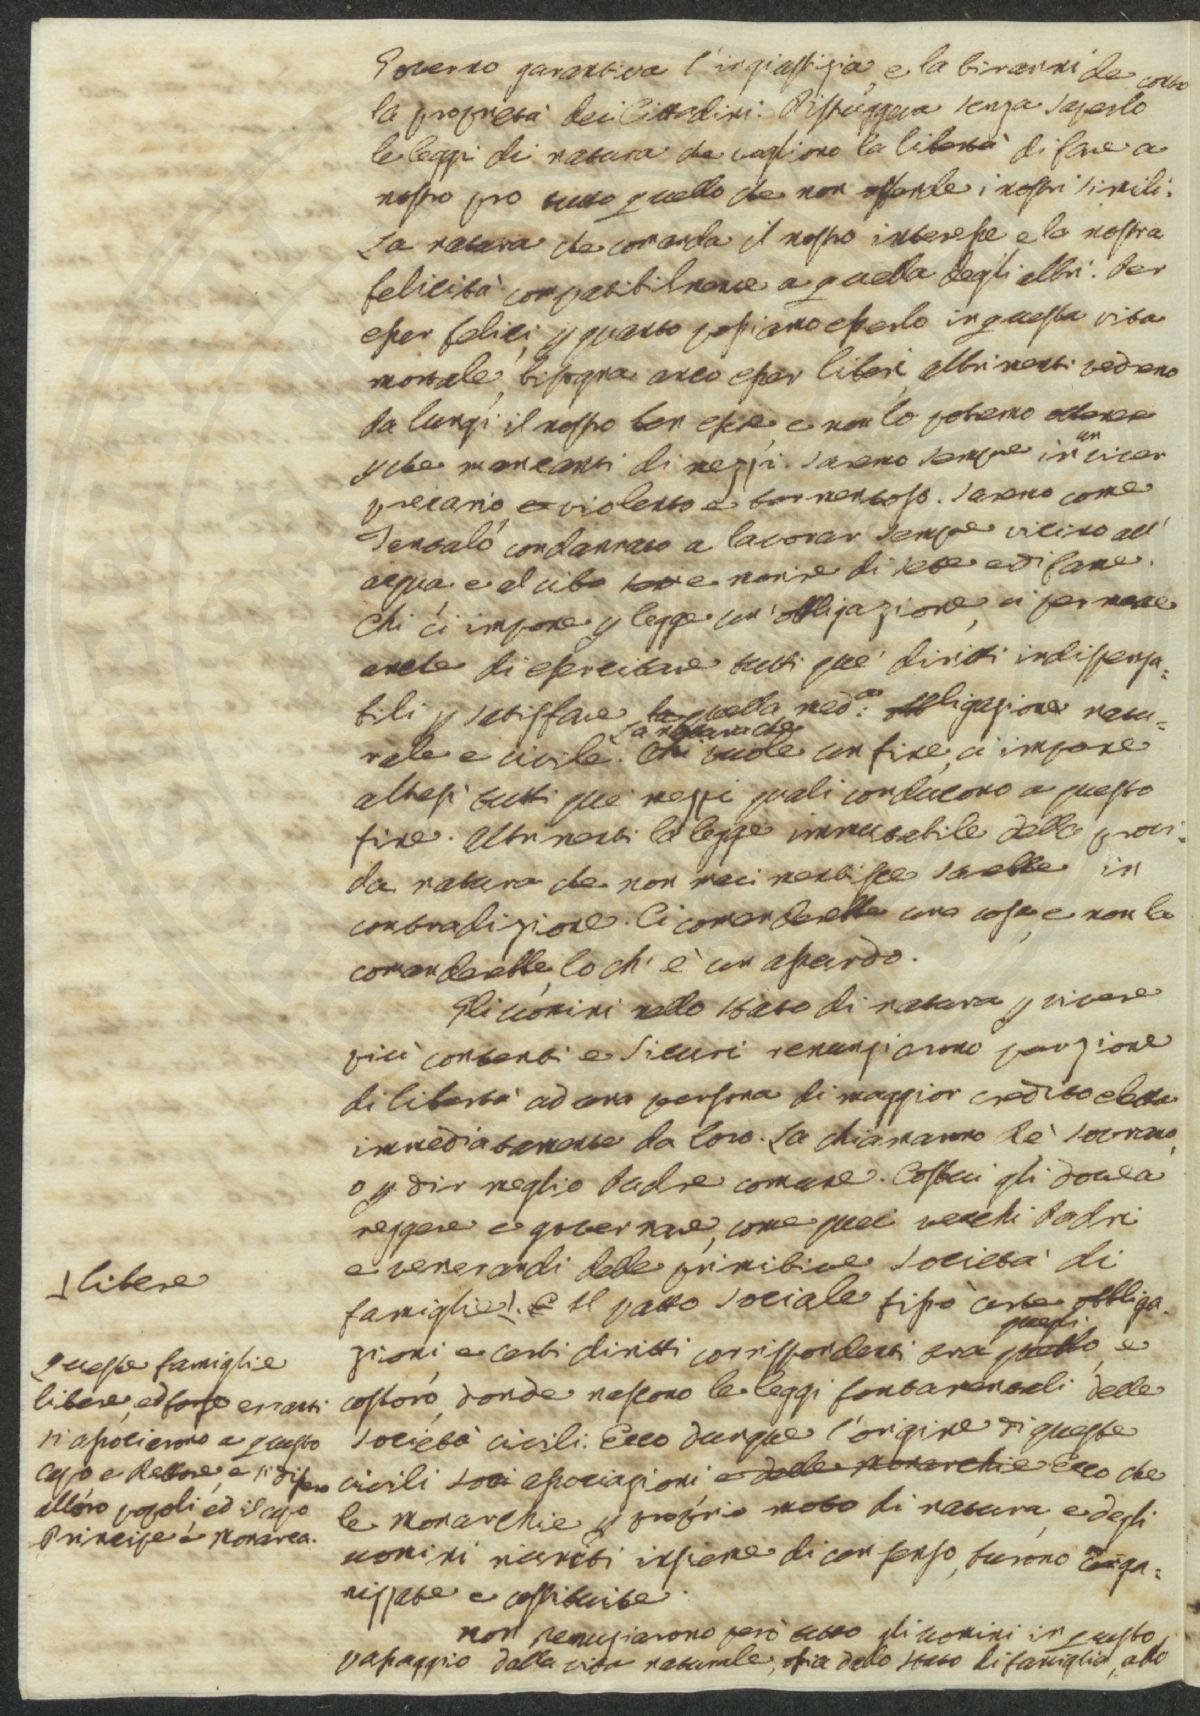 Governo garantiva l'ingiustizia, e la tirannide contro
la proprietà dei Cittadini. Distruggeva senza saperlo
le leggi di natura che vogliono la libertà di fare a
nostro pro tutto quello che non offende i nostri simili.
La natura che comanda il nostro interesse e la nostra
felicità compatibilmente a quella degli altri. Per
esser felici, p quanto possiamo esserlo in questa vita
mortale, bisogna anco esser liberi, altrimenti vedremo
da lungi il nostro ben essere, e non lo potremo ottenere
p che mancanti di mezzi. Saremo sempre in un viver
precario e violento e tormentoso. Saremo come
Tentalo condannato a lavorar sempre vicino all'
acqua e al cibo e morire di sete e di fame.
Chi ci impone p legge un'obbligazione, ci permette
anche di esercitare tutti que' diritti indispensa=
bili p satisfare quella med.ma obbligazione natu=
rale e civile. La natura che vuole un fine, ci impone
altresì tutti que' mezzi quali conducono a questo
fine. Altrimenti la legge immutabile della provi=
da natura che non mai mentisce sarebbe in
contradizione. Ci comanderebbe una cosa, e non la
comanderebbe, lo ch' è un assurdo.
Gli uomini nello stato di natura p vivere
più contenti e sicuri renunziarono porzione
di libertà ad una persona di maggior credito eletta
immediatamente da loro. La chiamarono Rè Sovrano,
o p dir meglio Padre comune. Costui gli dovea
reggere e governare, come quei vecchi Padri
e venerandi delle primitive Società di
famiglie. E Il patto sociale fissò certe obbliga=
zioni e certi diritti corrispondenti tra questi quello, e
costoro, donde nascono le leggi fontamentali delle
Società civili. Ecco dunque l'origine di queste
civili soci associazioni, e delle Monarchie Ecco che
le Monarchie p proprio moto di natura, e degli
uomini riuniti insieme di consenso, furono orga=
nizzate e costituite.
Non renuziarono però tutto gli uomini in questo
passaggio dalla vita naturale, ossia dello stato di famiglia, allo
libere
Queste famiglie
libere, ed forse erranti
si associarono a questo
capo e Rettore, e si dissero
allora popoli, ed il capo
Principe e Monarca.